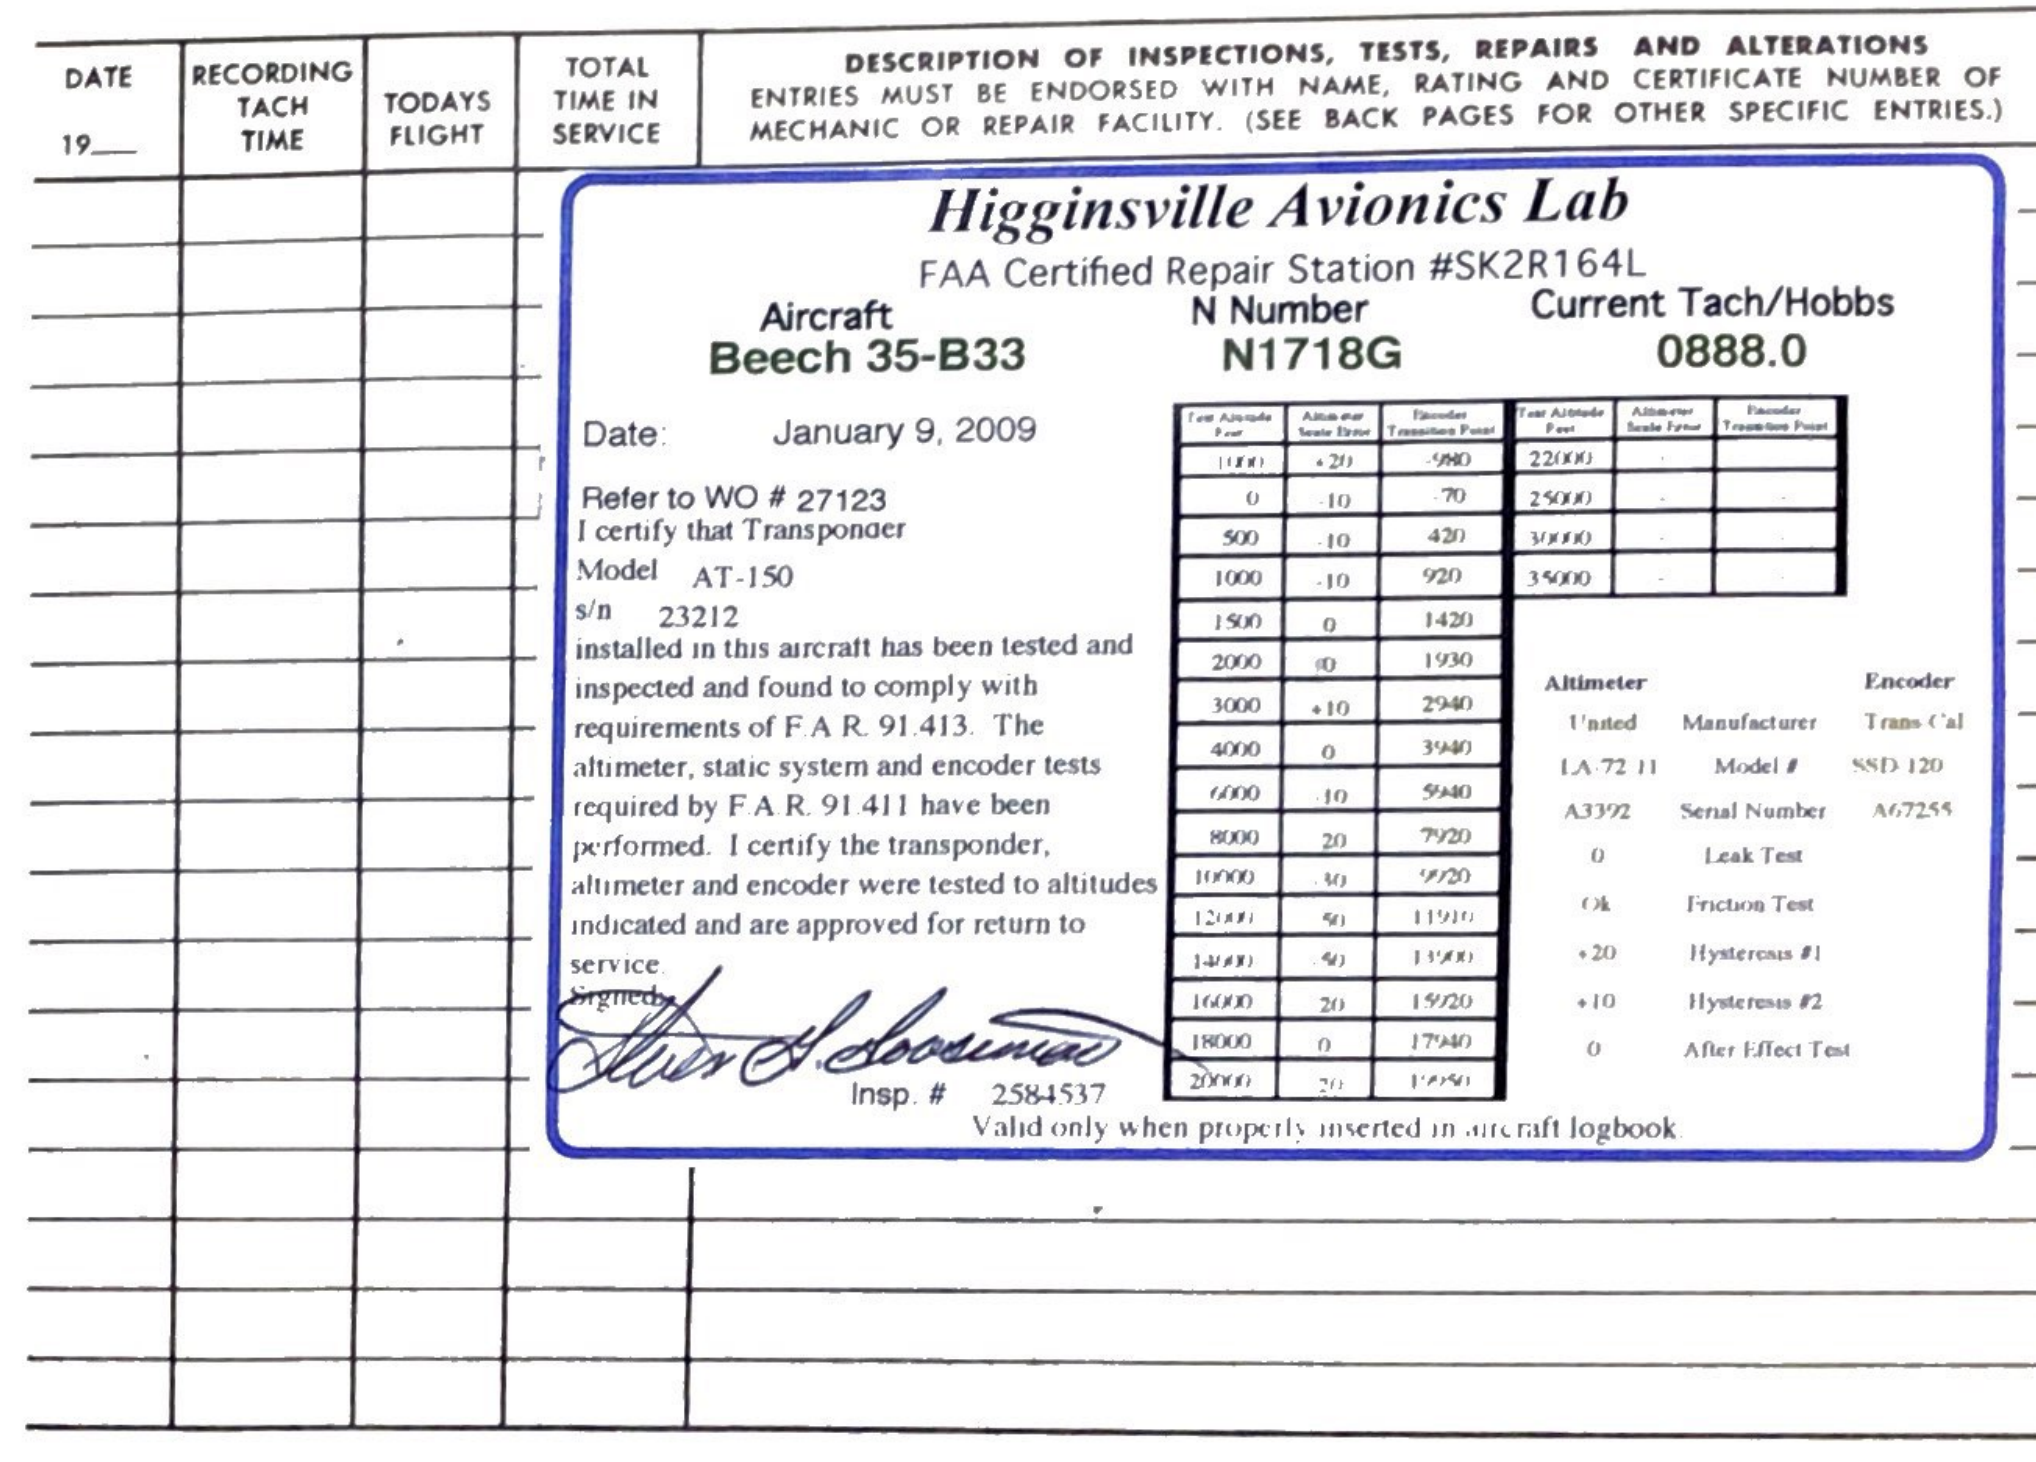 DATE
19
RECORDING
TACH
TIME
TODAYS
FLIGHT
TOTAL
TIME IN
SERVICE
DESCRIPTION OF INSPECTIONS, TESTS, REPAIRS AND ALTERATIONS
ENTRIES MUST BE ENDORSED WITH NAME, RATING AND CERTIFICATE NUMBER OF
MECHANIC OR REPAIR FACILITY. (SEE BACK PAGES FOR OTHER SPECIFIC ENTRIES.)
Higginsville Avionics Lab
FAA Certified Repair Station #SK2R164L
Aircraft N Number Current Tach/Hobbs
Beech 35-B33 N1718G 0888.0
Date: January 9, 2009
Refer to WO # 27123
I certify that Transponder
Model AT-150
s/n 23212
installed in this aircraft has been tested and
inspected and found to comply with
requirements of F.A R. 91.413. The
altimeter, static system and encoder tests
required by F.A.R. 91.411 have been
performed. I certify the transponder,
altimeter and encoder were tested to altitudes
indicated and are approved for return to
service.
Signed:
Insp. # 2584537
Test Altitude Feet Altimeter Scale Error Encoder Transition Point
1000 +20 -980
0 -10 -70
500 -10 420
1000 -10 920
1500 0 1420
2000 0 1930
3000 +10 2940
4000 0 3940
6000 -10 5940
8000 20 7920
10000 9920
12000 11910
14000 13900
16000 20 15920
18000 0 17940
20000 20
Test Altitude Feet Altimeter Scale Error Encoder Transition Point
22000 -
25000 - -
30000 - -
35000 - -
Altimeter Encoder
United Manufacturer Trans Cal
Model # SSD 120
A3392 Serial Number A67255
0 Leak Test
Ok Friction Test
+20 Hysteresis #1
+10 Hysteresis #2
0 After Effect Test
Valid only when properly inserted in aircraft logbook.